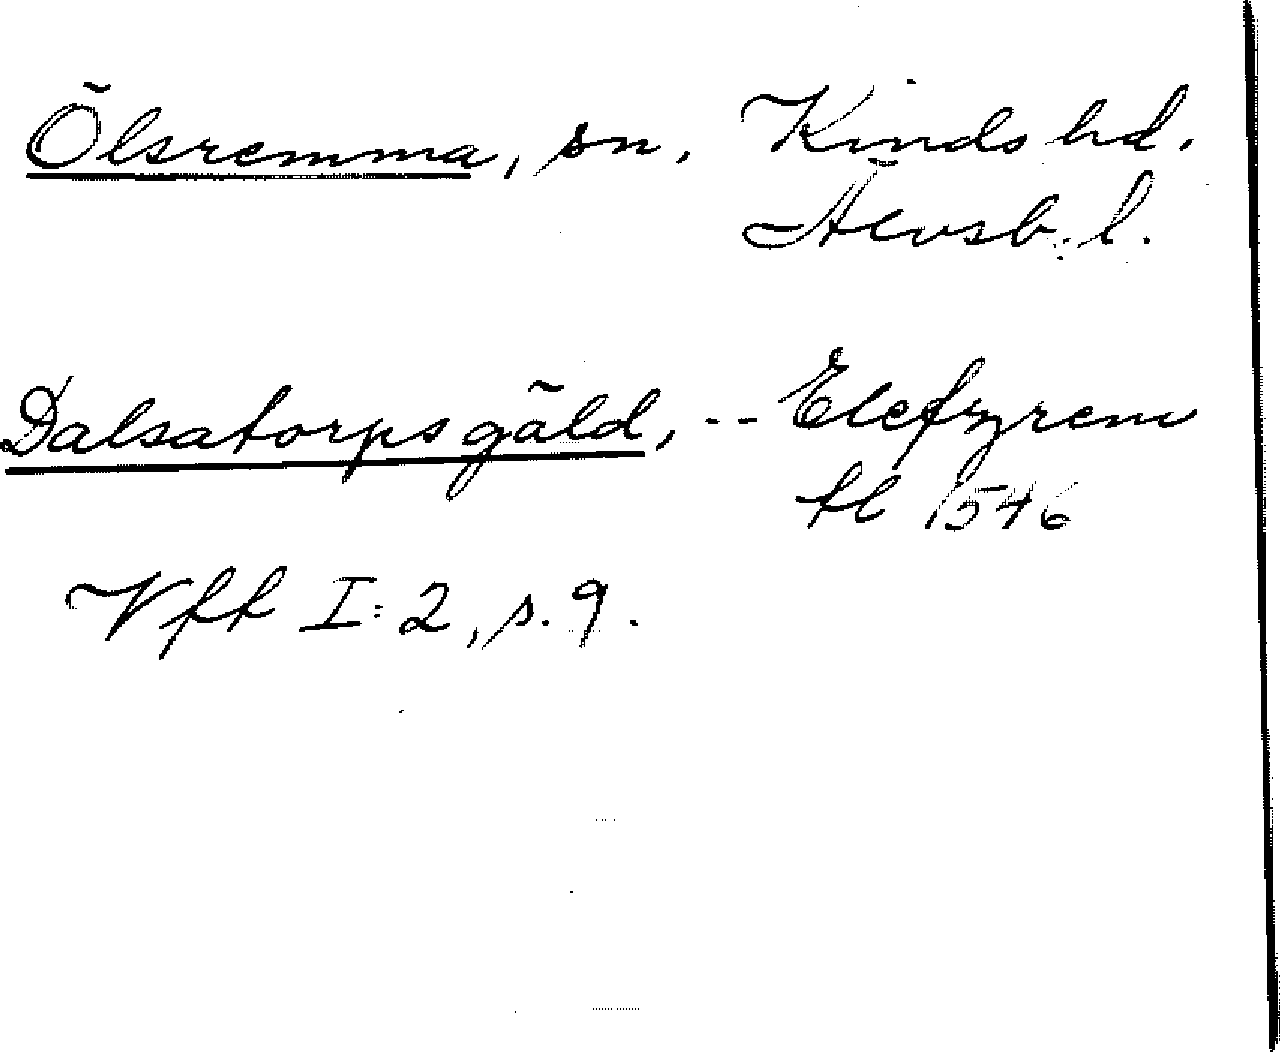 Ölsremma, sn, Kinds hd.
Älvsb. l.
Dalsatorps gäld, -- Elefzrem
fl 1546
Vff I:2, s. 9.